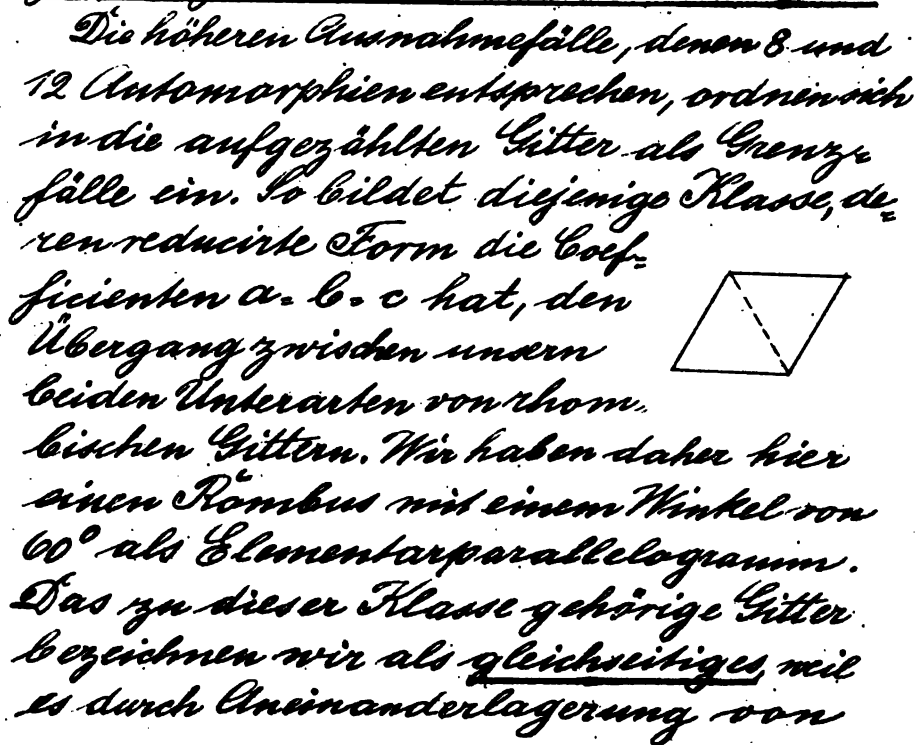 Die höheren Ausnahmefälle, denen 8 und
12 Automorphien entsprechen, ordnen sich
in die aufgezählten Gitter als Grenz=
fälle ein. So bildet diejenige Klasse, de=
ren reducirte Form die Coef=
ficienten a = b = c hat, den
Übergang zwischen unsern
beiden Unterarten von rhom=
bischen Gittern. Wir haben daher hier
einen Rombus mit einem Winkel von
60° als Elementarparallelogramm.
Das zu dieser Klasse gehörige Gitter
bezeichnen wir als gleichseitiges, weil
es durch Aneinanderlagerung von